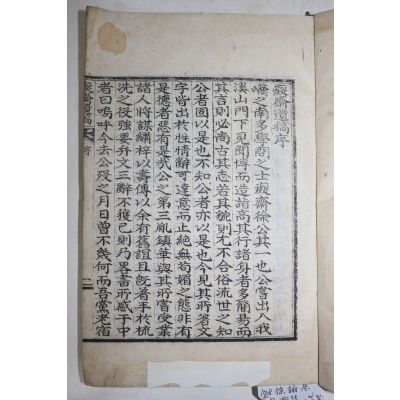 癡齋遺稿序
嶠之南多學問之士癡齋徐公其一也公嘗出入我
溪山門下見聞博而造詣高其行諸身者多簡易而
其言則必尚古其志若其貌則尤不合俗流世之知
公者固以是也不知公者亦以是也今見其所著文
字皆出於性情辭可達意而止絶無苟媚之態非有
是德者惡見是哉公之第三胤鎭華與其所嘗受業
諸人將謀繡梓以壽傳以余有舊誼且旣著手於梳
洗之役強要弁文三辭不獲已則乃畧書所感于中
者曰嗚呼今去公歿之月日曾不幾何而吾黨老宿
癡齋遺稿 序 一